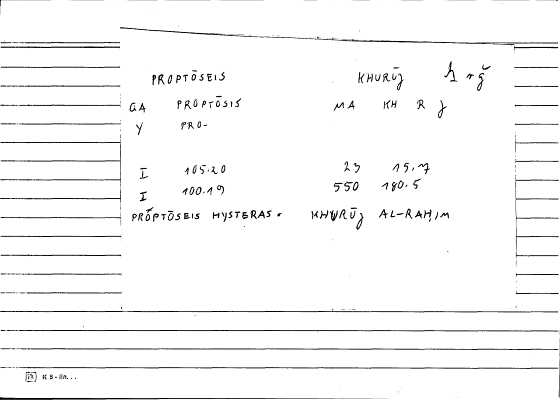 PROPTŌSEIS KHURŪJ ḫrǧ
GA PROPTŌSIS MA KH R J
Y PRO-
I 105.20 23 15.7
I 100.19 550 180.5
PROPTŌSEIS HYSTERAS. KHURŪJ AL-RAḤIM